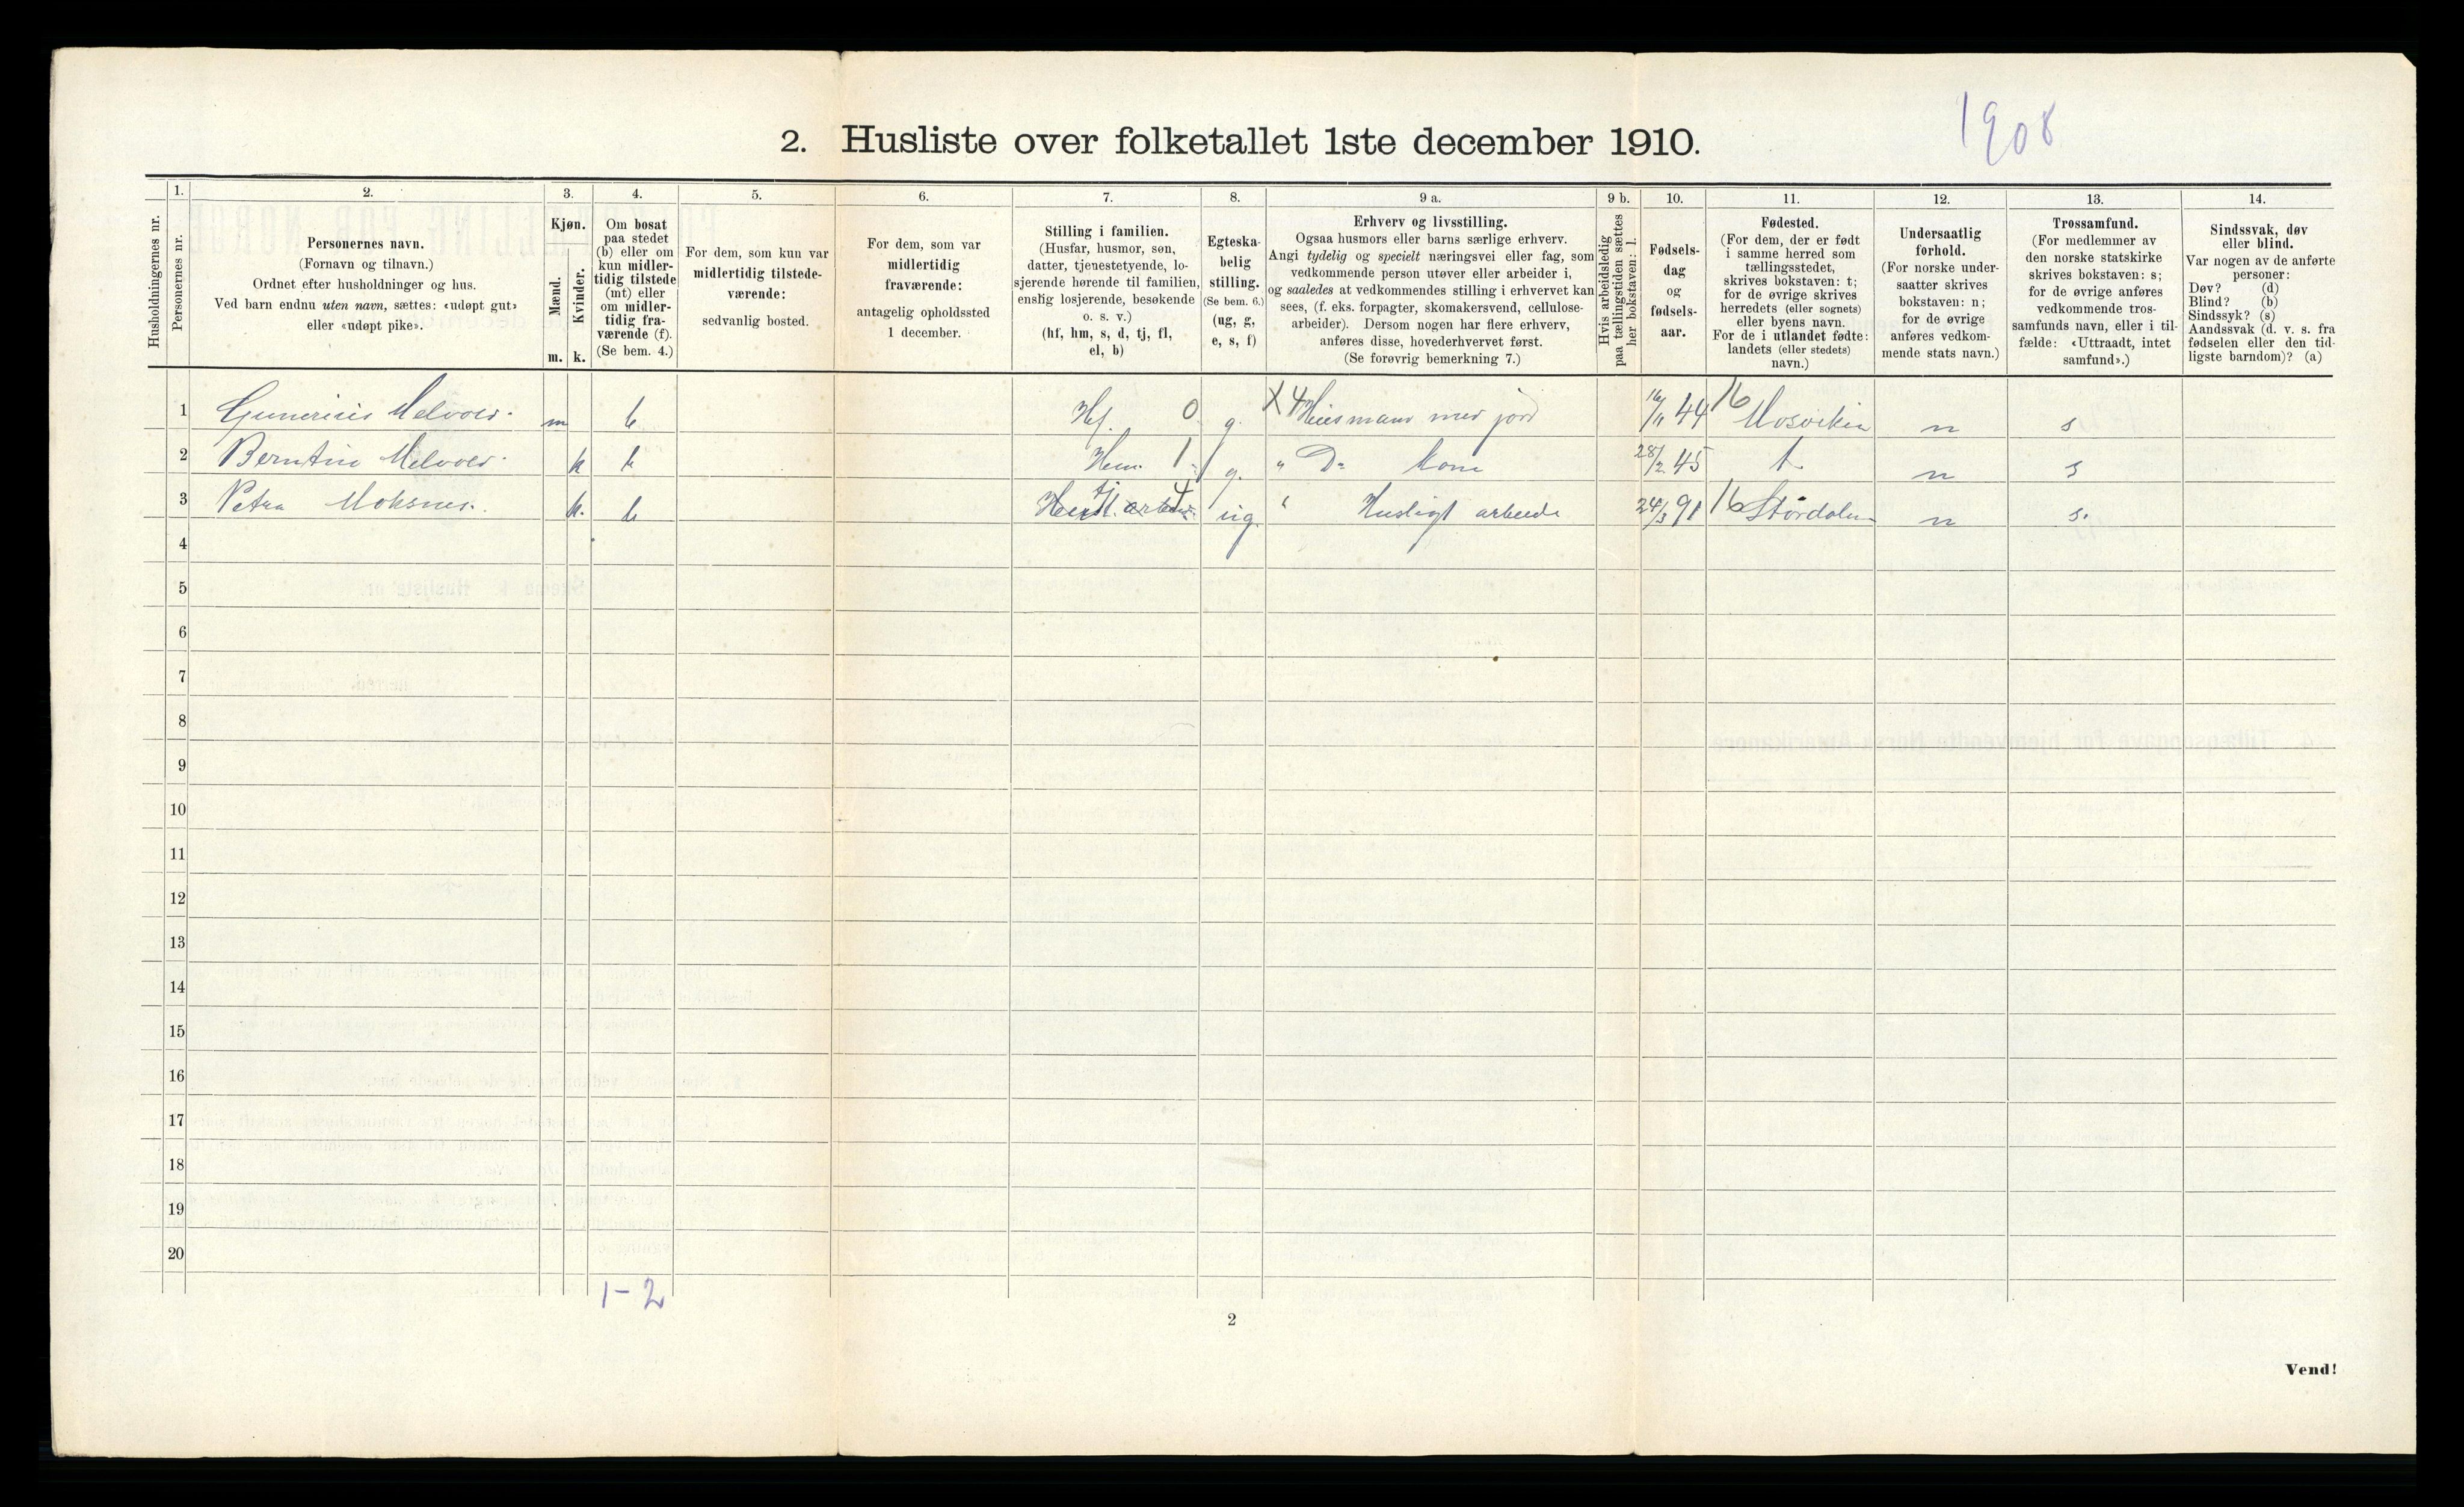 1908
2. Husliste over folketallet 1ste december 1910.
Husholdningernes nr.
1.
Personernes nr.
2.
Personernes navn.
(Fornavn og tilnavn.)
Ordnet efter husholdninger og hus.
Ved barn endnu uten navn, sættes: «udøpt gut»
eller «udøpt pike».
3.
Kjøn.
Mænd.
m.
Kvinder.
k.
4.
Om bosat
paa stedet
(b) eller om
kun midler-
tidig tilstede
(mt) eller
om midler-
tidig fra-
værende (f).
(Se bem. 4.)
5.
For dem, som kun var
midlertidig tilstede-
værende:
sedvanlig bosted.
6.
For dem, som var
midlertidig
fraværende:
antagelig opholdssted
1 december.
7.
Stilling i familien.
(Husfar, husmor, søn,
datter, tjenestetyende, lo-
sjerende hørende til familien,
enslig losjerende, besøkende
o. s. v.)
(hf, hm, s, d, tj, fl,
el, b)
8.
Egteska-
belig
stilling.
(Se bem. 6.)
(ug, g,
e, s, f)
9 a.
Erhverv og livsstilling.
Ogsaa husmors eller barns særlige erhverv.
Angi tydelig og specielt næringsvei eller fag, som
vedkommende person utøver eller arbeider i,
og saaledes at vedkommendes stilling i erhvervet kan
sees, (f. eks. forpagter, skomakersvend, cellulose-
arbeider). Dersom nogen har flere erhverv,
anføres disse, hovederhvervet først.
(Se forøvrig bemerkning 7.)
9 b.
Hvis arbeidsledig
paa tællingstiden sættes
her bokstaven: l.
10.
Fødsels-
dag
og
fødsels-
aar.
11.
Fødested.
(For dem, der er født
i samme herred som
tællingsstedet,
skrives bokstaven: t;
for de øvrige skrives
herredets (eller sognets)
eller byens navn.
For de i utlandet fødte:
landets (eller stedets)
navn.)
12.
Undersaatlig
forhold.
(For norske under-
saatter skrives
bokstaven: n;
for de øvrige
anføres vedkom-
mende stats navn.)
13.
Trossamfund.
(For medlemmer av
den norske statskirke
skrives bokstaven: s;
for de øvrige anføres
vedkommende tros-
samfunds navn, eller i til-
fælde: «Uttraadt, intet
samfund».)
14.
Sindssvak, døv
eller blind.
Var nogen av de anførte
personer:
Døv? (d)
Blind? (b)
Sindssyk? (s)
Aandssvak (d. v. s. fra
fødselen eller den tid-
ligste barndom)? (a)
1 Gunerius Melvold. m b Hf. 0 g. X 4 Husmand med jord 16/11 44 16 Mosviken n s
2 Berntine Melvold. k b Hm. 1 g. " Do kone 28/2 45 t. n s
3 Petra Moksnes. k. b tj 4 ug. " Husligt arbeide 24/3 91 16 Størdalen n s.
4
5
6
7
8
9
10
11
12
13
14
15
16
17
18
19
20
1-2
2
Vend!